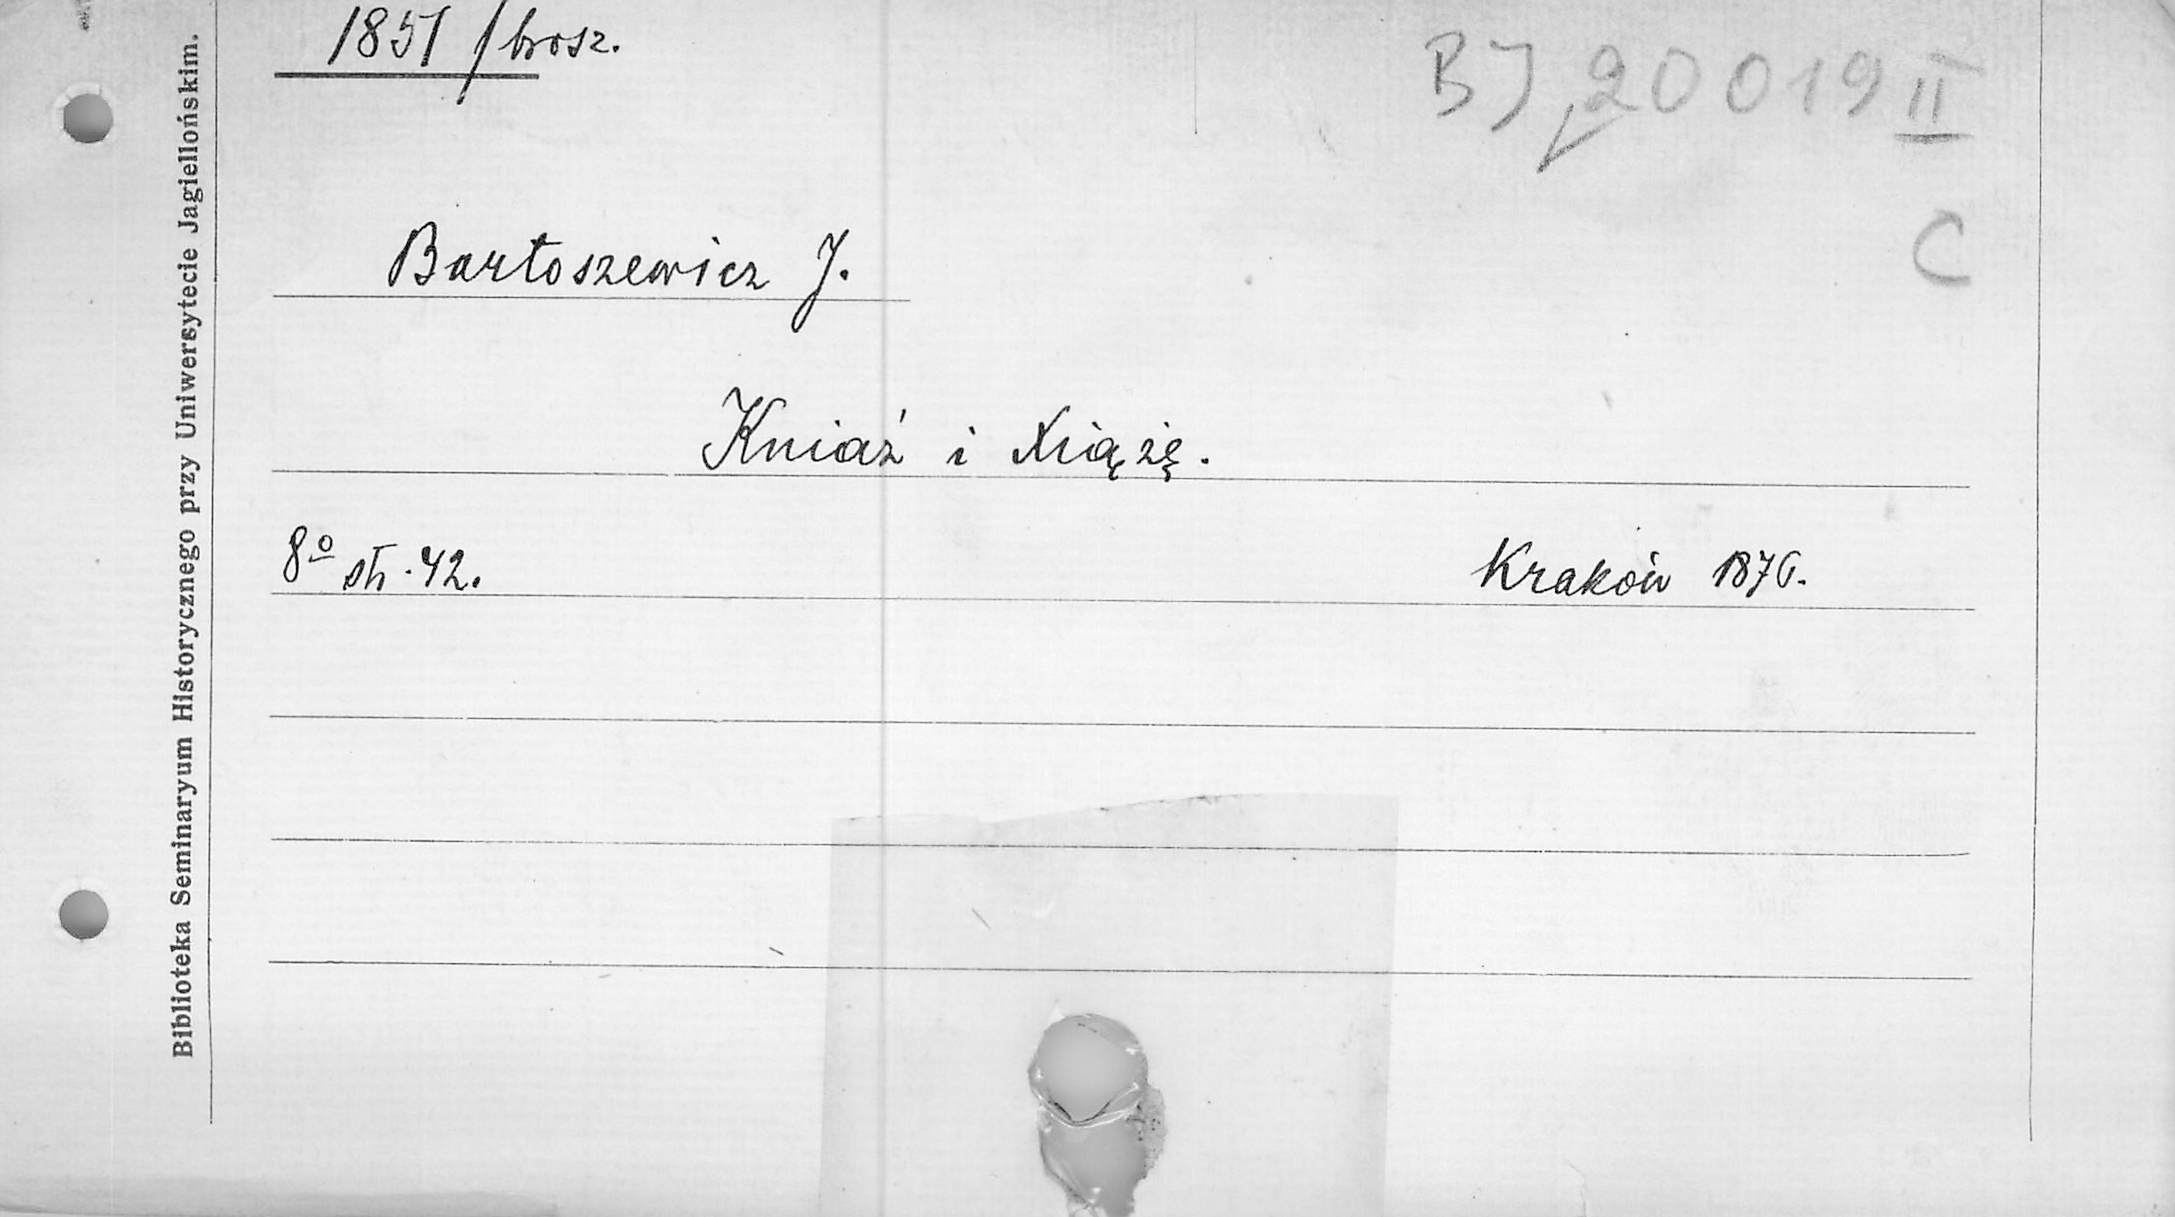 1851 / brosz.
BJ 20019 II
C
Bartoszewicz J.
Kniaź i Xiążę.
8º str. 42.
Kraków 1876.
Biblioteka Seminaryum Historycznego przy Uniwersytecie Jagiellońskim.